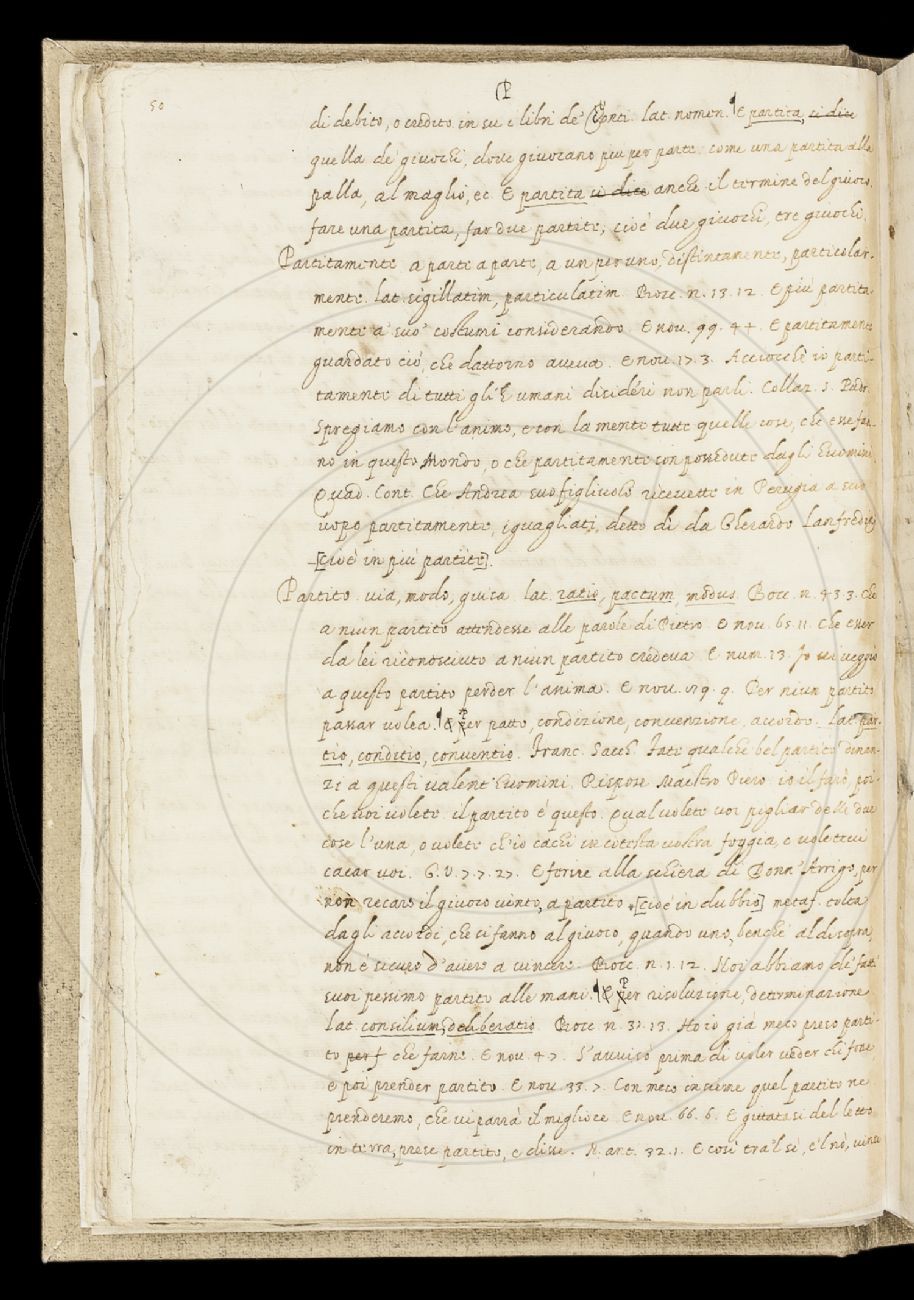 50
P
di debito, o credito in su i libri de' Conti. lat. nomen. E partita, si dice
quella de' givochi, dove givocano piu per parte come una partita alla
palla, al maglio, ec. E partita si dice anche il termine del givoco,
fare una partita, far due partite, cioè due givochi, tre givochi.
Partitamente a parte a parte, a un per uno, distintamente, particolar-
mente. lat. sigillatim, particulatim. Bocc. n. 13. 12. E più partita-
mente a' suo' costumi considerando. E nov. 99. 44. E partitamente
guardato ciò, che dattorno aveva. E nov. 17. 3. Acciocchè io parti-
tamente di tutti gli umani disidéri non parli. Collaz. S. Padr.
Spregiamo con l'animo, e con la mente tutte quelle cose, che esse fan-
no in questo Mondo, o che partitamente son possedute dagli Huomini.
Quad. Cont. Che Andrea suo figlivolo ricevette in Perugia a suo
uopo partitamente, iguagliati, detto dì da Gherardo Lanfredini
[cioè in più partite].
Partito. via, modo, guisa. lat. ratio, pactum, modus. Bocc. n. 43. 3. Che
a niun partito attendesse alle parole di Pietro. E nov. 65. 11. Che esser
da lei riconosciuto a niun partito credeva. E num. 13. Io mi veggio
a questo partito perder l'anima. E nov. 79. 9. Per niun partito
passar volea. E Per patto, condizione, convenzione, accordo. Lat. par-
tio, conditio, conventio. Franc. Sacch. Fate qualche bel partito dinan-
zi a questi valent'Huomini. Rispose Maestro Piero io il farò poi-
che voi volete. il partito è questo. Qual volete voi pigliar delle due
cose l'una, o volete ch'io cachi in cotesta vostra foggia, o volettevi
cacar voi. G. V. 7. 7. 27. E ferire alla schiera di Donn'Arrigo, per
non recare il givoco vinto, a partito [cioè in dubbio] metaf. tolta
dagli accordi, che si fanno al givoco, quando uno, benchè al di sopra,
non è sicuro d'avere a vincere. Bocc. n. 1. 12. Noi abbiamo de' fatti
suoi pessimo partito alle mani. E Per risoluzione, determinazione
lat. consilium, deliberatio. Bocc. n. 37. 13. Ho io già meco preso parti-
to che farne. E nov. 47. S'avvisò prima di voler veder chi fosse,
e poi prender partito. E nov. 33. 7. Con meco insieme quel partito ne
prenderemo, che vi parrà il migliore. E nov. 66. 6. E gittatasi del letto
in terra, prese partito, e disse. N. ant. 32. 1. E così tra'l sì, e'l nò, vinse